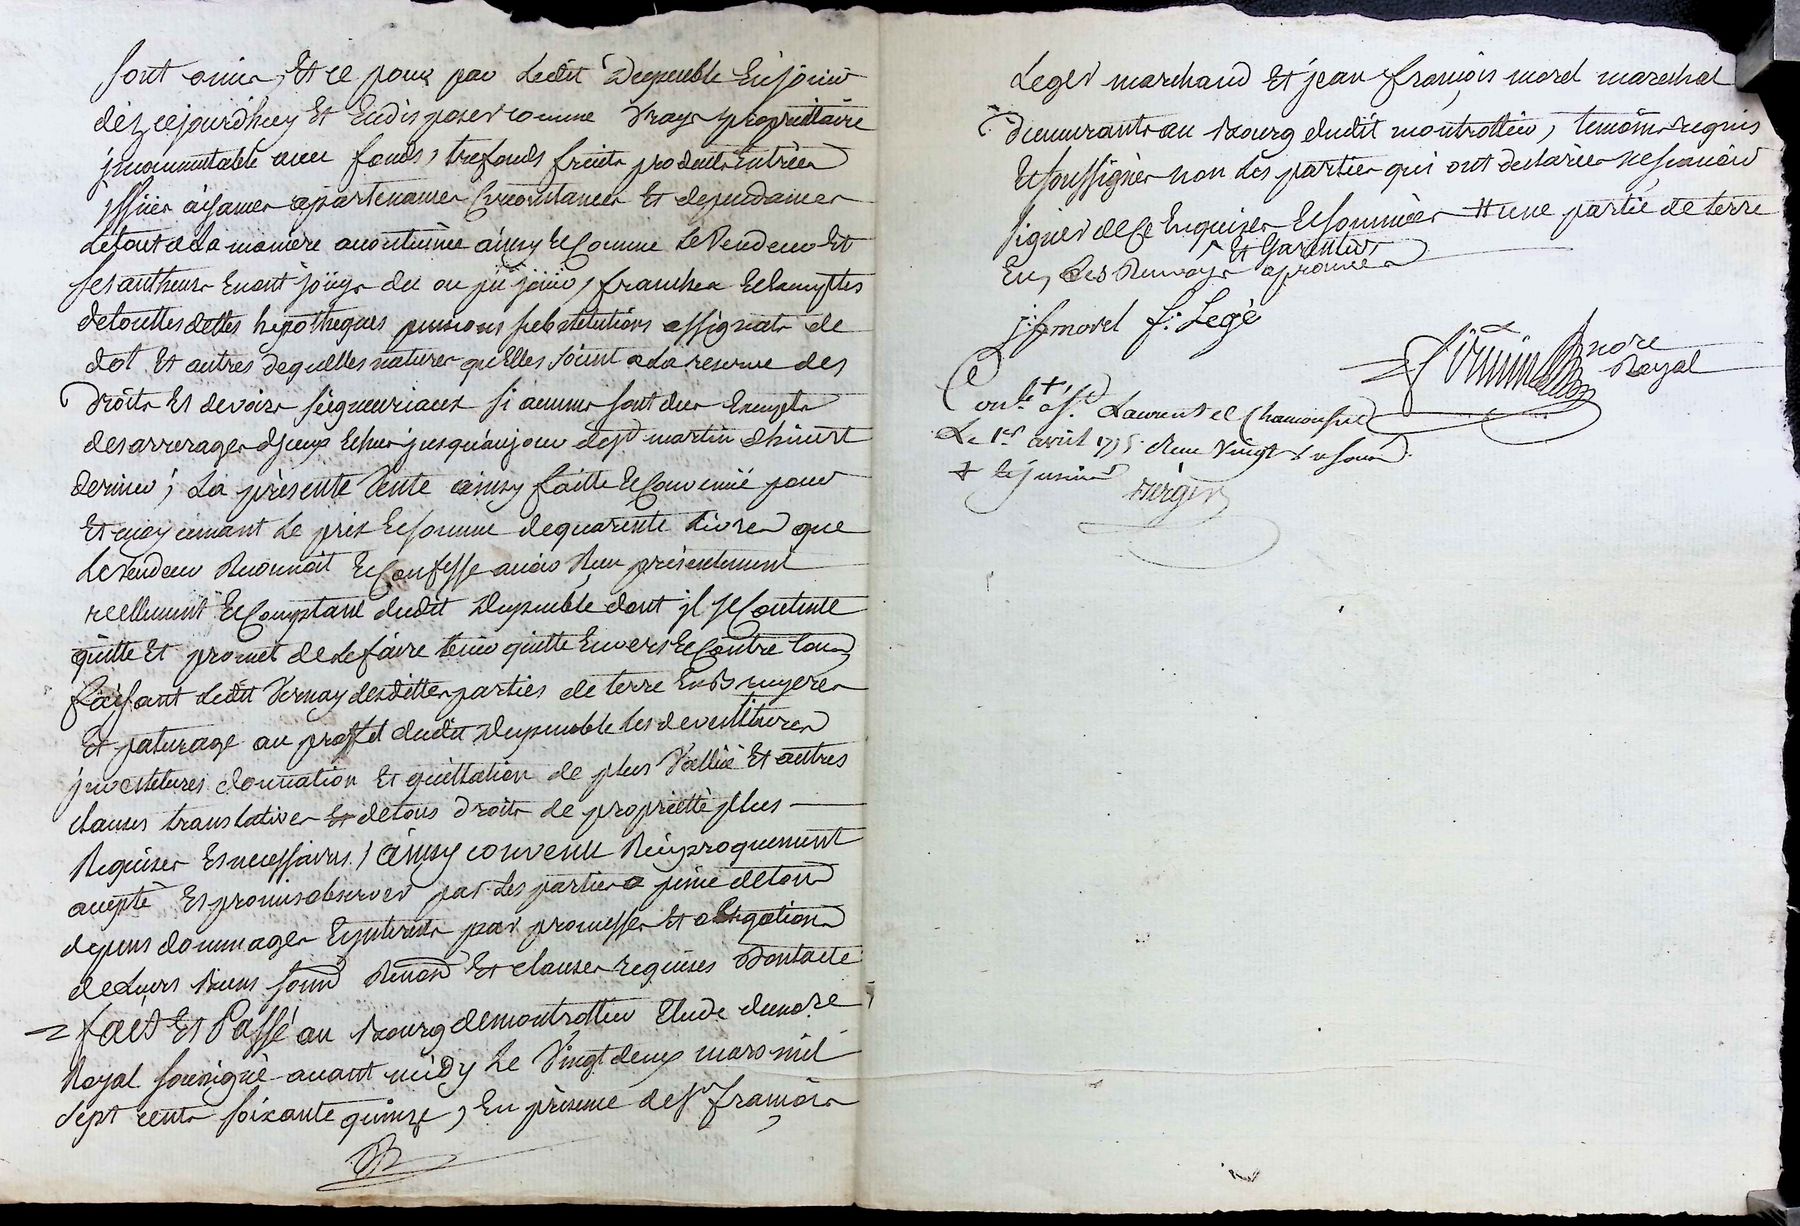 sont omis, Et ce pour par Ledit Dupeuble En jouir
déz cejourdhuy Et En disposer comme Vray propriettaire
jncommutable avec fonds, trefonds fruits produits Entrées
jssües aisances apartenances Circonstances Et dependances
Le tout de la maniere avant ainsy Et Comme Le Vendeur Et
ses autheurs En ont joüys du ou pü joüir, franches Et Exemptes
de touttes dettes hipotheques pensions substitutions assignats de
dot Et autres de quelles natures qu'Elles soient a La reserve des
Droits Et devoirs seigneuriaux si aucuns sont dus Exempts
des arrerages d'jceux Echus jusqu'au jour de st martin d'hiver
dernier; La présente Vente ainsy faitte Et Convenüe pour
Et moyennant Le prix Et somme de quarente Livres que
Le Vendeur Reconnoit Et Confesse avoir Reçu présentement
reellement Et Comptant dudit Dupeuble, dont jl se Contente
quitte Et promet de Le faire tenir quitte Envers Et Contre tous
faisant Ledit Vernay desdittes parties de terre En Bruyeres
Et paturage au proffit dudit Dupeuble Les devestitures
jnvestitures donnation Et quittation de plus Vallüe Et autres
clauses translatives Et de tous Droits de propriettè plus
Requises Et necessaires, / ainsy convenu Réciproquement
acceptè Et promis observer par Les parties a peine de tous
depens dommages Et jnterests par promesses Et obligations
de Leurs biens soum Renon Et clauses requises Dont acte
fait Et Passé au Bourg de montrottier Etude du no.re
Royal soussignè avant midy Le Vingt deux mars mil
sept cents soixante quinze, En présence de sr françois
Leger marchand Et jean françois morel marechal
demeurants au Bourg dudit montrottier, temoins requis
Et soussignés non Les parties qui ont declarées ne sçavoir
signer de Ce Enquises Et sommées # une partie de terre
Et Garentir
En, Les Renvoys aprouvés
j: f morel f: Legé
nore
Royal
Con.lé + a St Laurent de Chamousset
Le 1er avril 1775 Reçu Vingt
+